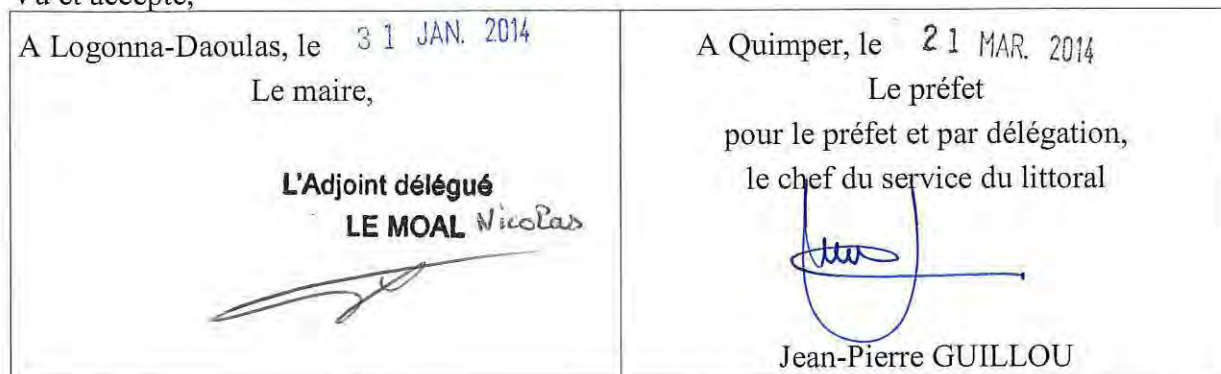 Vu et accepté,
A Logonna-Daoulas, le 31 JAN. 2014
Le maire,
L'Adjoint délégué
LE MOAL Nicolas
A Quimper, le 21 MAR. 2014
Le préfet
pour le préfet et par délégation,
le chef du service du littoral
Jean-Pierre GUILLOU